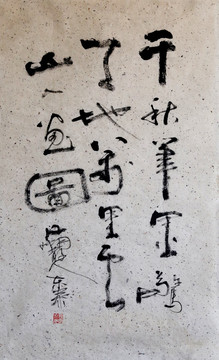 千秋筆墨驚
天地萬里云
山入畫圖